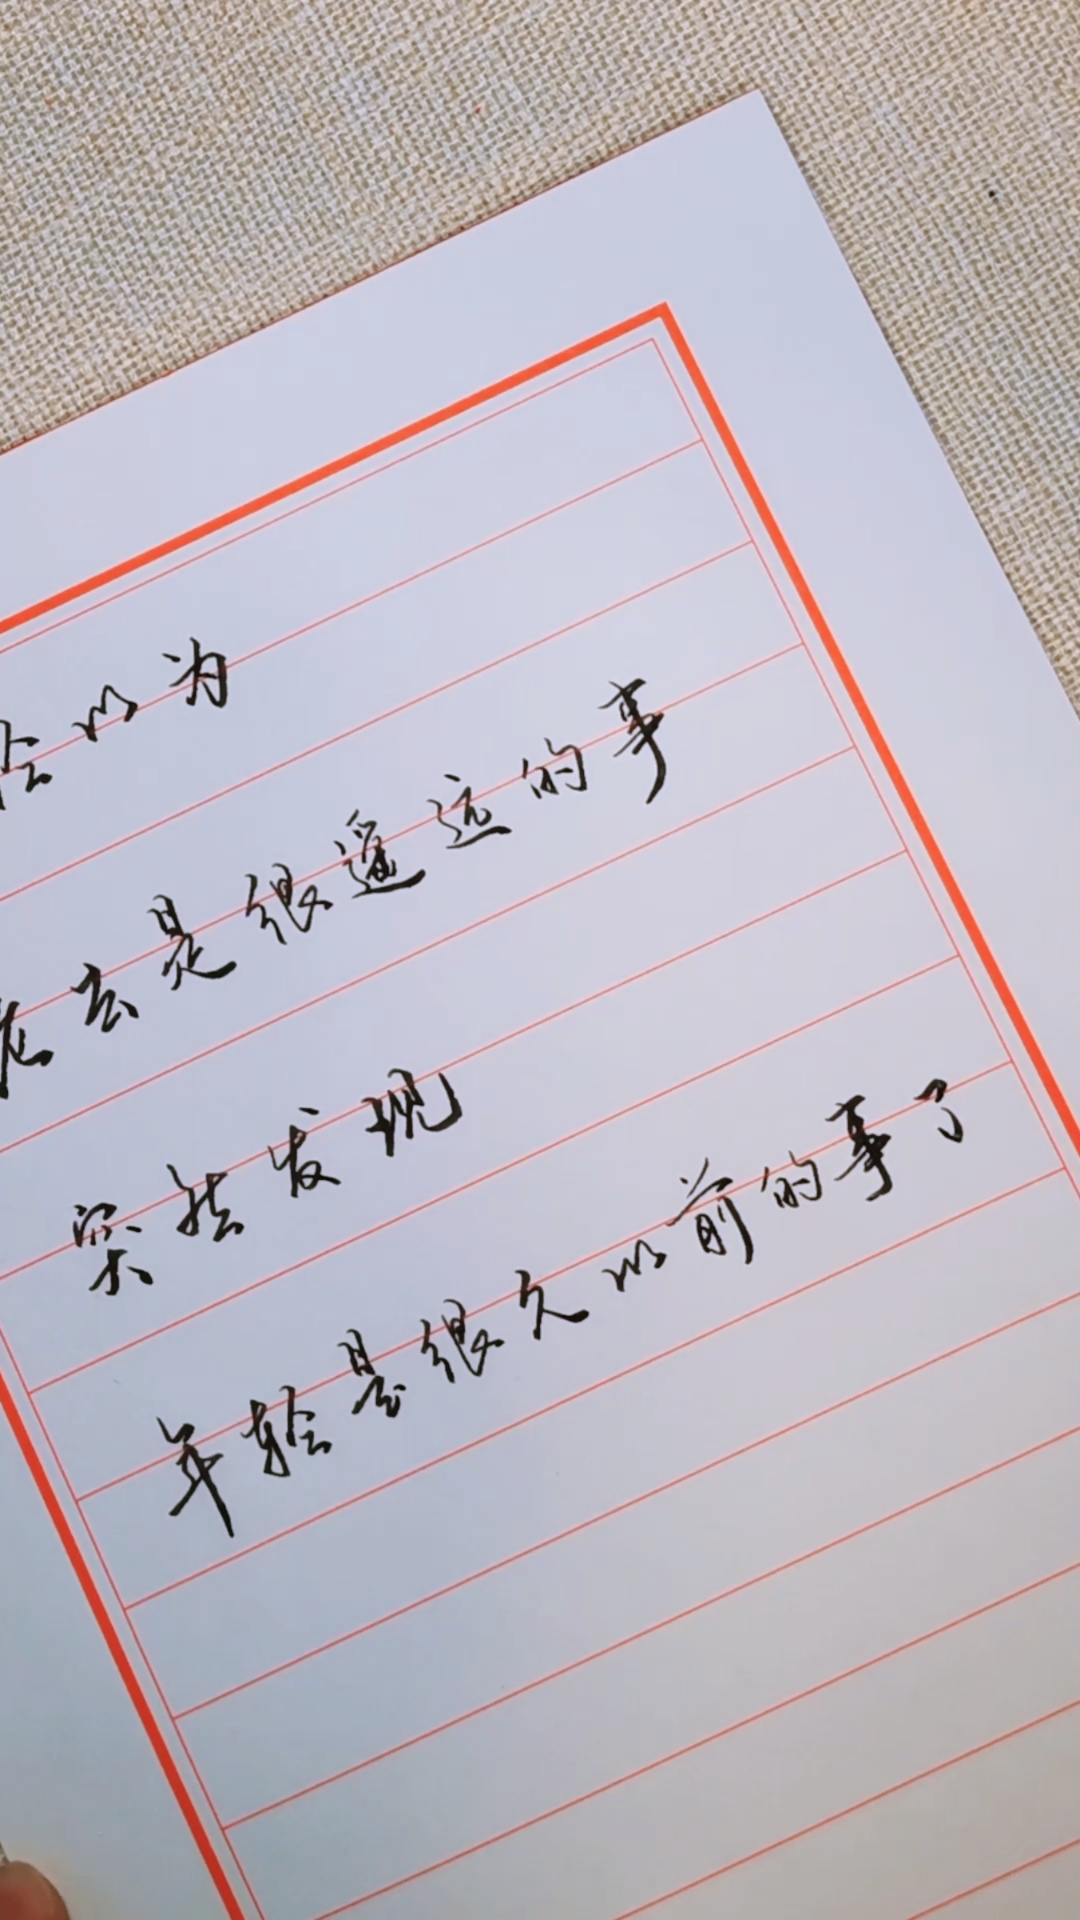 以为
老去是很遥远的事
突然发现
年轻是很久以前的事了